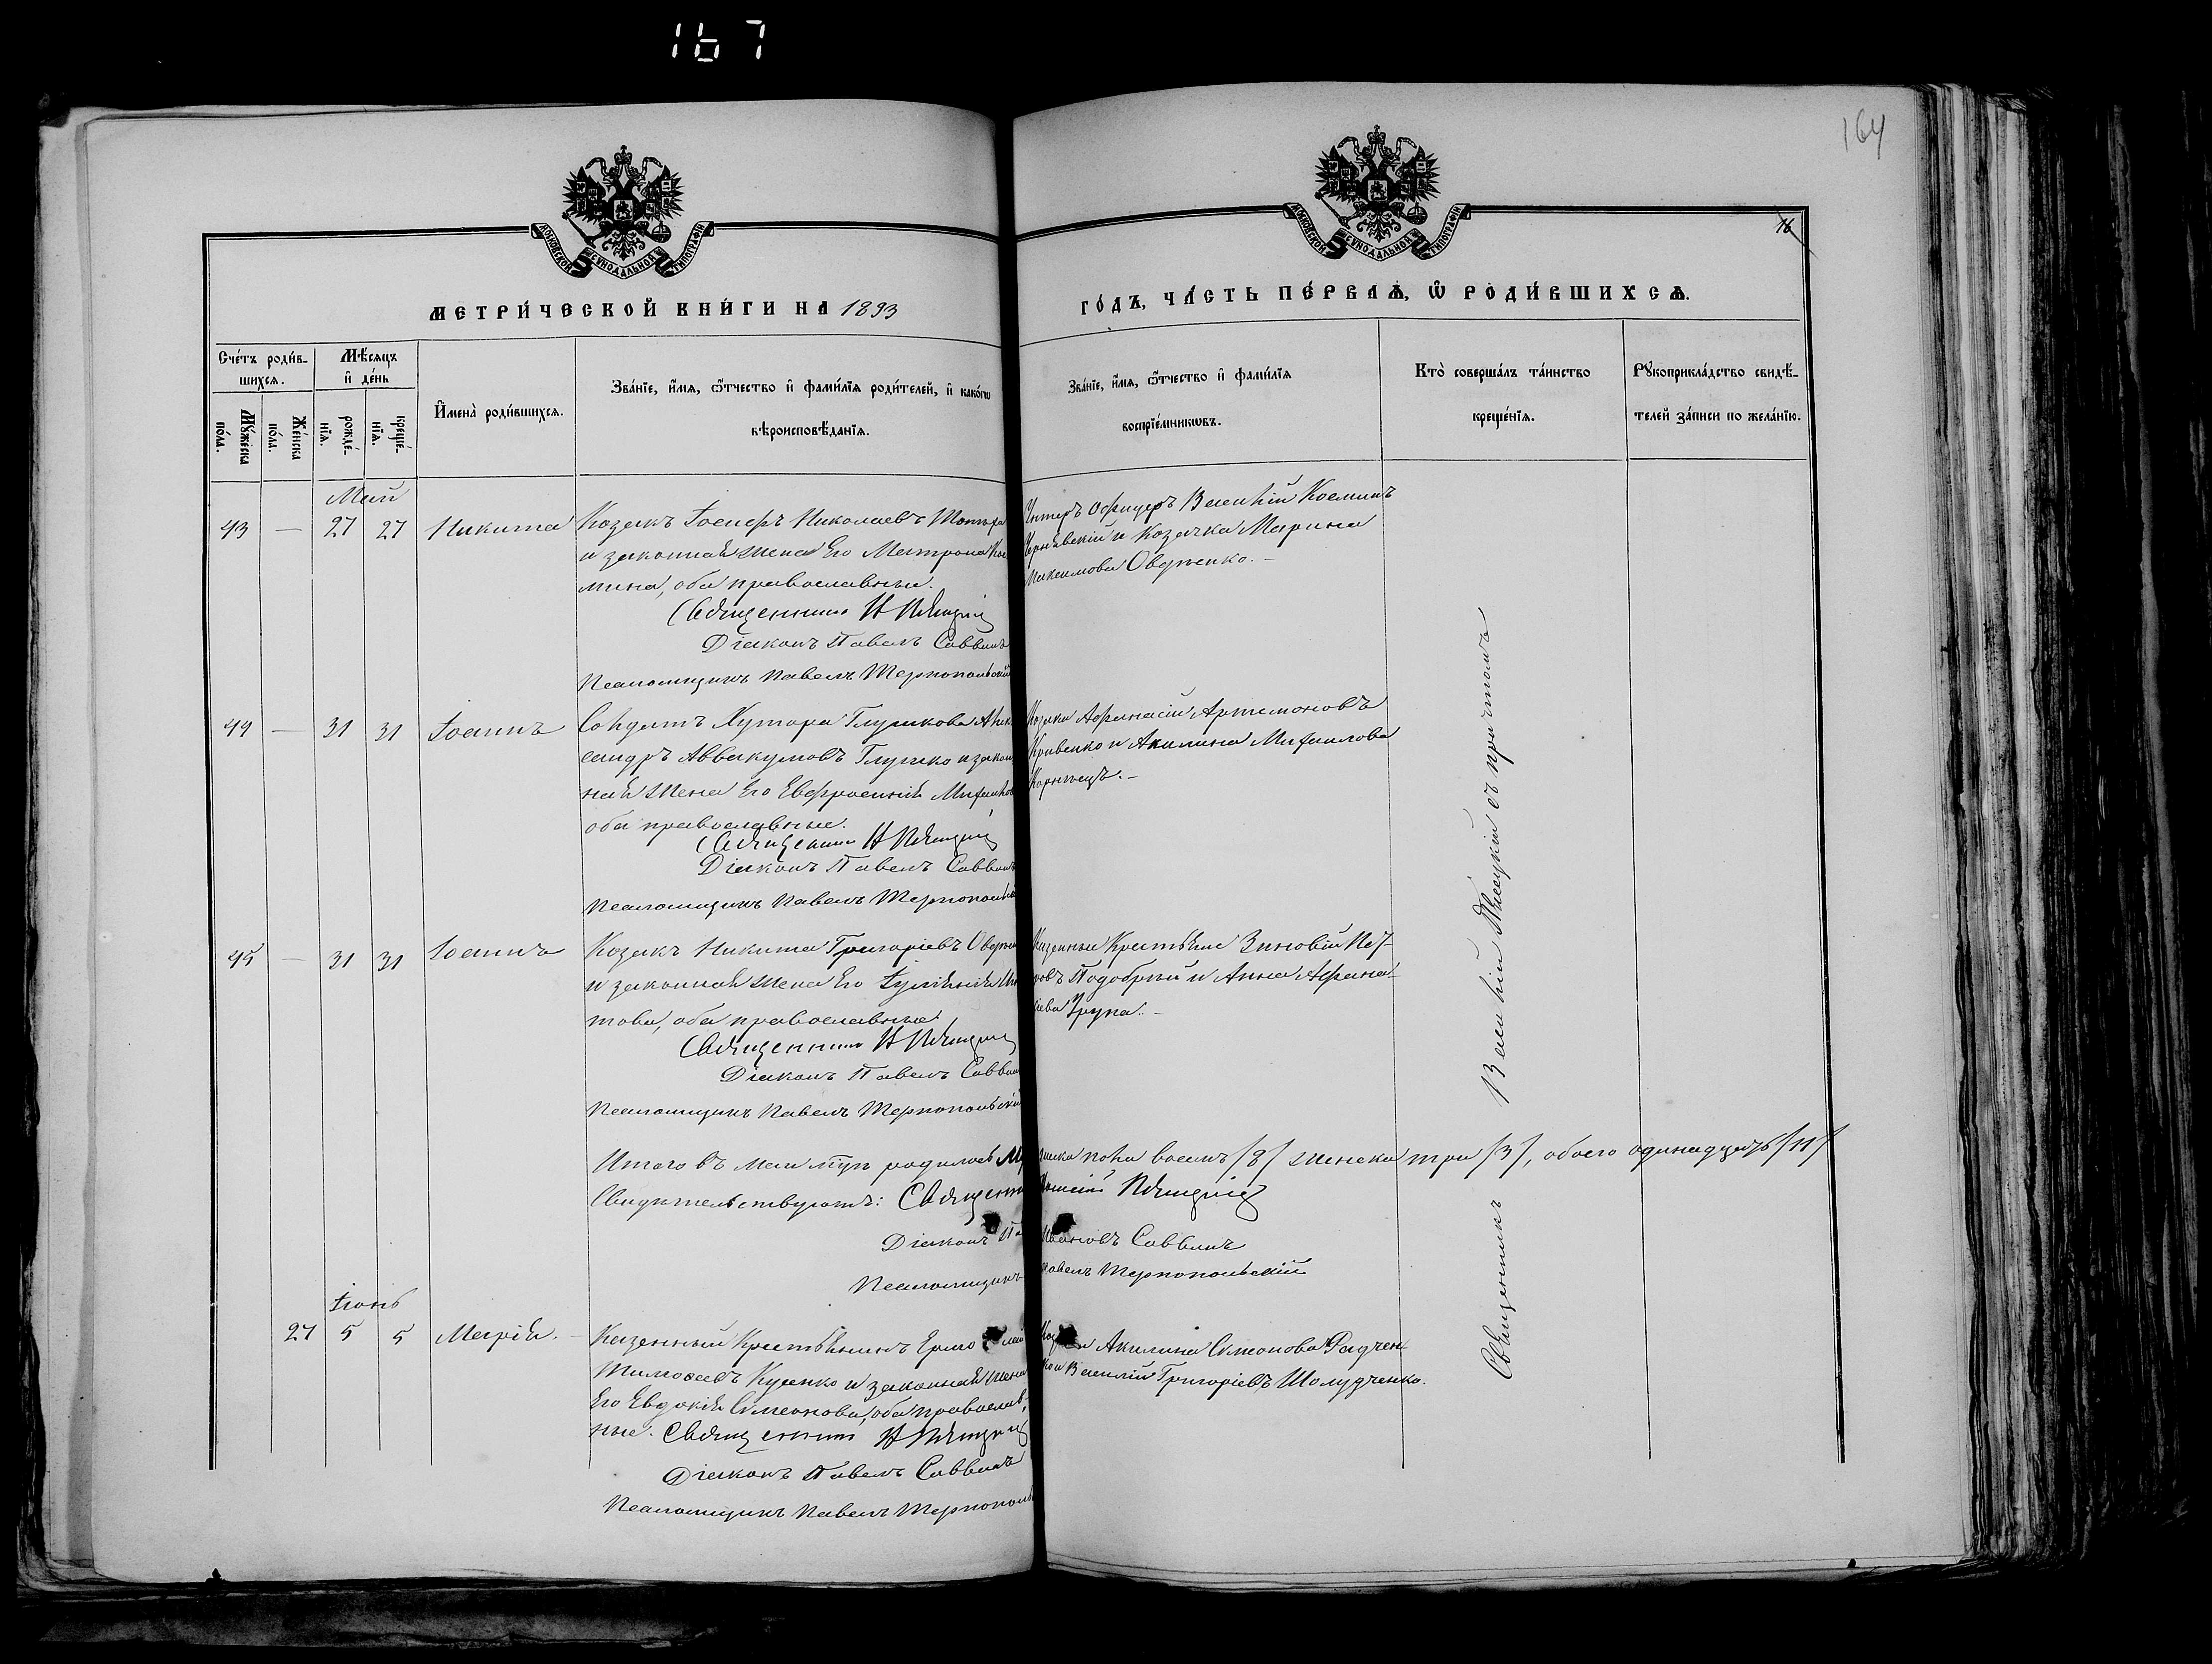 167
164
16
МОСКОВСКОЙ СѴНОДАЛЬНОЙ ТИПОГРАФІИ
МОСКОВСКОЙ СѴНОДАЛЬНОЙ ТИПОГРАФІИ
МЕТРИ́ЧЕСКОЙ КНИ́ГИ НА 1893
ГО́ДЪ, ЧА́СТЬ ПЕ́РВАѦ, Ѽ РОДИ́ВШИХСѦ.
Сче́тъ роди́в-
шихсѧ.
Мѣ́сѧцъ
и҆ де́нь
Мꙋ́жеска
по́ла.
Же́нска
по́ла.
рожде́-
нїѧ.
креще́-
нїѧ.
И҆мена̀ роди́вшихсѧ.
Зва́нїе, и҆́мѧ, ѻ҆́тчество и҆ фами́лїѧ роди́телей, и҆ како́гѡ
вѣроисповѣ́данїѧ.
Зва́нїе, и҆́мѧ, ѻ҆́тчество и҆ фами́лїѧ
воспрїе́мникѡвъ.
Кто̀ соверша́лъ та́инство
креще́нїѧ.
Рꙋкоприкла́дство свидѣ́-
телей за́писи по жела́нїю.
Май
43 — 27 27 Никита
Козакъ Іосифъ Николаевъ
и законная жена его Матрона
мина, оба православные.
Священникъ Н
Діаконъ Павелъ Саввинъ
Псаломщикъ Павелъ Тернопольскій
Унтеръ Офицеръ Василій Косминъ
Чернявскій и Козачка Марина
Максимова Овдѣенко. —
44 — 31 31 Іоаннъ
Солдатъ Хутора Глушкова Алек
сандръ Аввакумовъ Глушко и закон
ная жена его Евфросинія Михайлов
оба православные.
Священникъ Н
Діаконъ Павелъ Саввинъ
Псаломщикъ Павелъ Тернопольскій
Козаки Афанасій Артемоновъ
Кривенко и Акилина Михаилова
Корнѣецъ. —
45 — 31 31 Іоаннъ
Козакъ Никита Григоріевъ
и законная жена его Іуліанія
това, оба православные
Священникъ Н
Діаконъ Павелъ Саввинъ
Псаломщикъ Павелъ Тернопольскій
Казенные Крестьяне Зиновій Пет-
ровъ Подобный и Анна Афана-
сіева —
Итого въ маѣ м̃цѣ родилось Му
жеска пола восемь /8/ женска три /3/, обоего одинадцать /11/
Свидѣтельствуютъ: Священникъ
Діаконъ Павелъ Ивановъ Саввинъ
Псаломщикъ Павелъ Тернопольскій
Іюнь
27 5 5 Марія. —
Казенный Крестьянинъ Ермолай
Тимоѳеевъ Куценко и законная жена
его Евдокія Симеонова, оба православ-
ные. Священникъ Н
Діаконъ Павелъ Саввинъ
Псаломщикъ Павелъ Тернополь
Акилина Симеонова Радчен-
ко и Василій Григоріевъ Шолудченко.
Священникъ Василій съ причтомъ